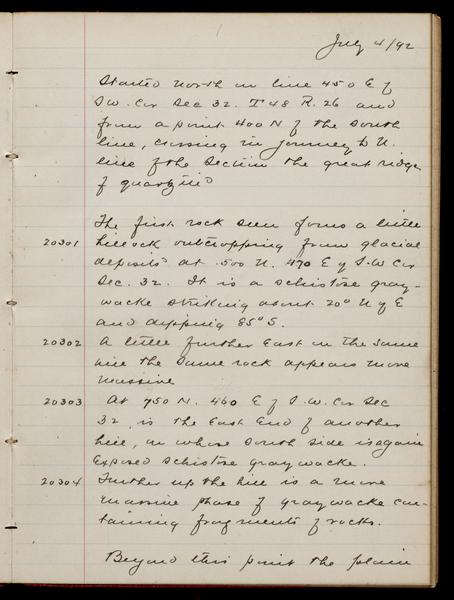 July 4/92
Started North on line 450 E of
SW. Cor Sec 32. T 48 R. 26 and
from a point 400 N of the South
line, crossing in journey to N.
line of the Section the great ridge
of quartzite
The first rock seen forms a little
20301 hillock outcropping from glacial
deposits at 500 N. 470 E of S.W Cor
Sec. 32. It is a schistose gray-
wacke striking about 20° N of E
and dipping 85° S.
20302 A little further East in the same
hill the same rock appears more
massive
20303 At 750 N. 460 E of S.W. Cor Sec
32, is the East End of another
hill, on whose South side is again
Exposed schistose graywacke.
20304 Further up the hill is a more
massive phase of graywacke con-
taining fragments of rocks.
Beyond this point the plain